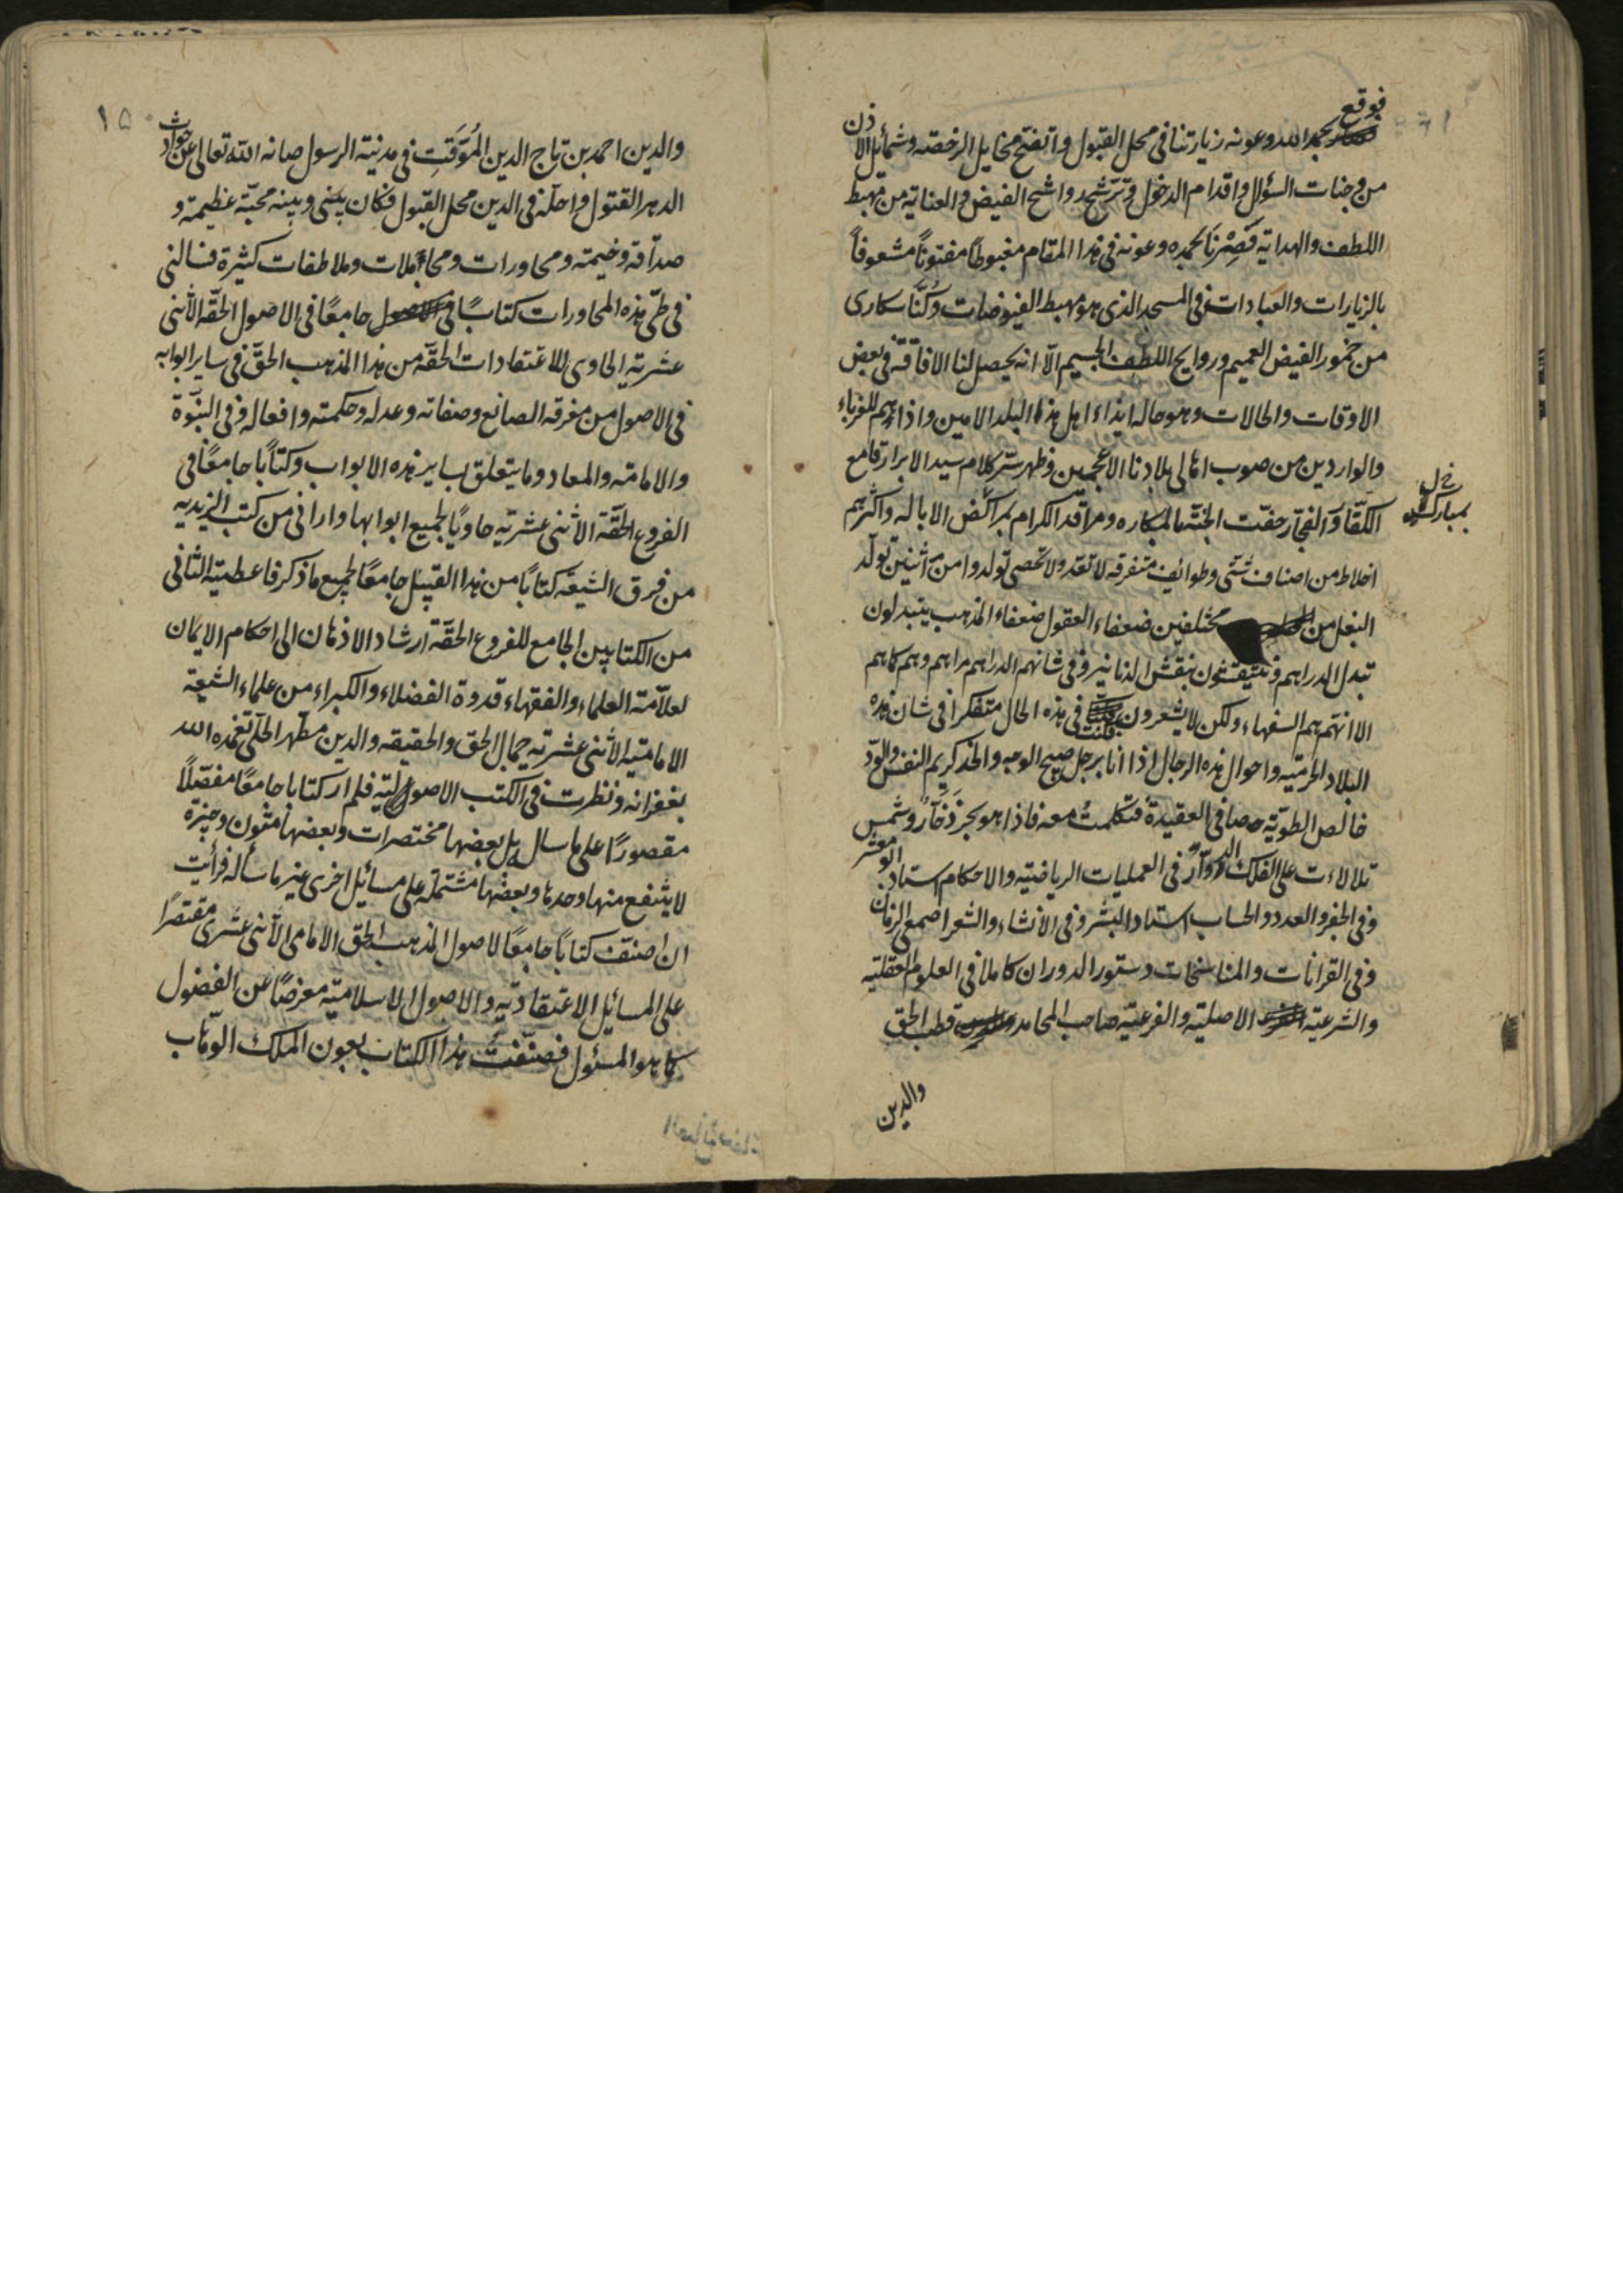 فوقع بحمد الله وعونه زيارتنا في محل القبول واتفتح مخايل الرخصة وشمائل الاذن
من وجنات السؤال واقدام الدخول وترشح رواشح الفيض والعناية من مهبط
اللطف والهداية فَصِرْنَا بحمده وعونه في هذا المقام مغبوطًا مفتونًا مشعوفًا
بالزيارات والعبادات في المسجد الذي هو مهبط الفيوضات وكُنَّا سكارى
من خمور الفيض العميم وروايح اللطف الجسيم الّا انه يحصل لنا الافاقة في بعض
الاوقات والحالات وهو حالة ايذاء اهل هذا البلد الامين واذاءهم للغرباء
والواردين من صوب اهالي بلادنا الاعجمين وظهر سرّ كلام سيد الابرار قامع
الكفّار والفجّار حفّت الجنّة بالمكاره ومراقد الكرام بمراكض الابالة واكثرهم
خ ل
بمبارك
اخلاط من اصناف شتّى وطوائف متفرقة لا تعدّ ولا تحصى تولدوا من اثنين تولّد
البغل من مختلفين ضعفاء العقول ضعفاء المذهب يتبدلون
تبدل الدراهم وينتقشون بنقش الدنانير وفي شانهم الدراهم مراهم وهم كاهم
الا انهم هم السفهاء ولكن لا يشعرون فكنت في هذه الحال متفكرا في شان هذه
البلاد الحرمية واحوال هذه الرجال اذا انا برجل صبيح الوجه والخد كريم النفس والودّ
خالص الطويّة صافي العقيدة فتكلمتُ معه فاذا هو بحر ذَخّارٌ وشمس
تلالاءت على الفلك الدوّار في العمليات الرياضية والاحكام استاد ابو معشر
وفي الجفر والعدد والحساب استاد البشر وفي الانشاء والشعر اصمعي الزمان
وفي القرانات والمناسخات دستور الدوران كاملا في العلوم العقلية
والشرعية الاصلية والفرعية صاحب المحامد قطب الحق
والدين
١٥
والدين احمد بن تاج الدين المُوَقِّتِ في مدينة الرسول صانه الله تعالى عن حوادث
الدهر القتول واحلّه في الدين محل القبول فكان بيني وبينه محبّة عظيمة و
صداقة وخيمة ومحاورات ومجاملات وملاطفات كثيرة فسالني
في طيّ هذه المحاورات كتابًا في جامعًا في الاصول الحقّة الاثنى
عشرية الحاوى للاعتقادات الحقّة من هذا المذهب الحقّ في ساير ابوابه
في الاصول من معرفة الصانع وصفاته وعدله وحكمته وافعاله وفي النبوّة
والامامة والمعاد وما يتعلق بساير هذه الابواب وكتابًا جامعًا في
الفروع الحقّة الاثنى عشرية حاويًا لجميع ابوابها وارانى من كتب الزيدية
من فرق الشيعة كتابًا من هذا القبيل جامعًا لجميع ما ذكر فاعطيته الثانى
من الكتابين الجامع للفروع الحقّة ارشاد الاذهان الى احكام الايمان
لعلاّمة العلماء والفقهاء قدوة الفضلاء والكبراء من علماء الشيعة
الامامية الاثنى عشرية جمال الحق والحقيقة والدين مطهر الحلّى تغمده الله
بغفرانه ونظرت في الكتب الاصولية فلم ار كتابا جامعًا مفصّلًا
مقصورًا على ما سال بل بعضها مختصرات وبعضها متون وجيزة
لا ينتفع منها وحدها وبعضها مشتملة على مسائل اخرى غير ما سأله فرأيت
ان اصنّف كتابًا جامعًا لاصول المذهب الحق الامامى الاثنى عشرى مقتصرًا
على المسائل الاعتقاديّة والاصول الاسلاميّة معرضًا عن الفضول
كما هو المسئول فصنّفتُ هذا الكتاب بعون الملك الوهّاب